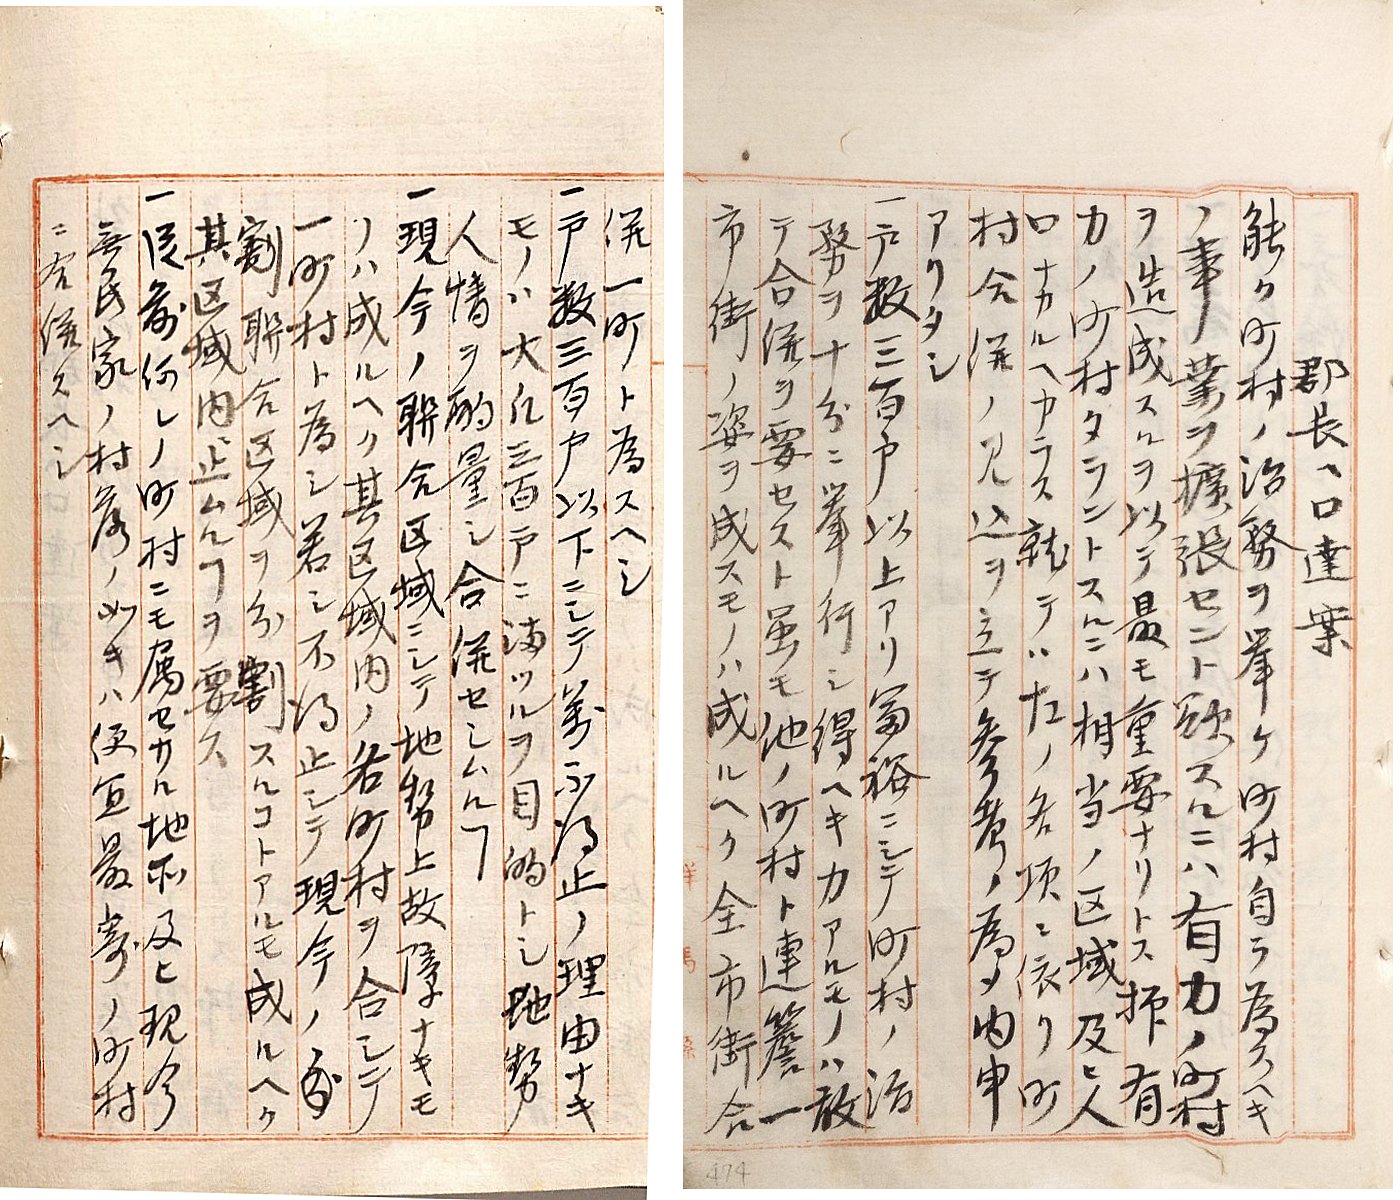 郡長ヘ口達案
能ク町村ノ治務ヲ挙ケ町村自ラ為スヘキ
ノ事ノ業ヲ擴張セント欲スルニハ有力ノ町村
ヲ造成スルヲ以テ最モ重要ナリトス抑有
力ノ町村タラントスルニハ相当ノ区域及ヒ人
口ナカルヘカラス就テハ左ノ各項ニ依リ町
村合併ノ見込ヲ立テ参考ノ為メ内申
アリタシ
一戸数三百戸以上アリ富裕ニシテ町村ノ治
務ヲ十分ニ挙行シ得ヘキ力アルモノハ敢
テ合併ヲ要セスト虽モ他ノ町村ト連簷一
市街ノ姿ヲ成スモノハ成ルヘク全市街合
併一町ト為スヘシ
一戸数三百戸以下ニシテ萬不得止ノ理由ナキ
モノハ大凡三百戸ニ満ツルヲ目的トシ地勢
人情ヲ酌量シ合併セシムルヿ
一現今ノ聯合区域ニシテ地勢上故障ナキモ
ノハ成ルヘク其区域内ノ各町村ヲ合シテ
一町村ト為シ若シ不得止シテ現今ノ
割聯合区域ヲ分割スルコトアルモ成ルヘク
其区域内止ムルヿヲ要ス
一従前何レノ町村ニモ属セサル地所及ヒ現今
無民家ノ村落ノ如キハ便宜最寄ノ町村
ニ合併スヘシ
474